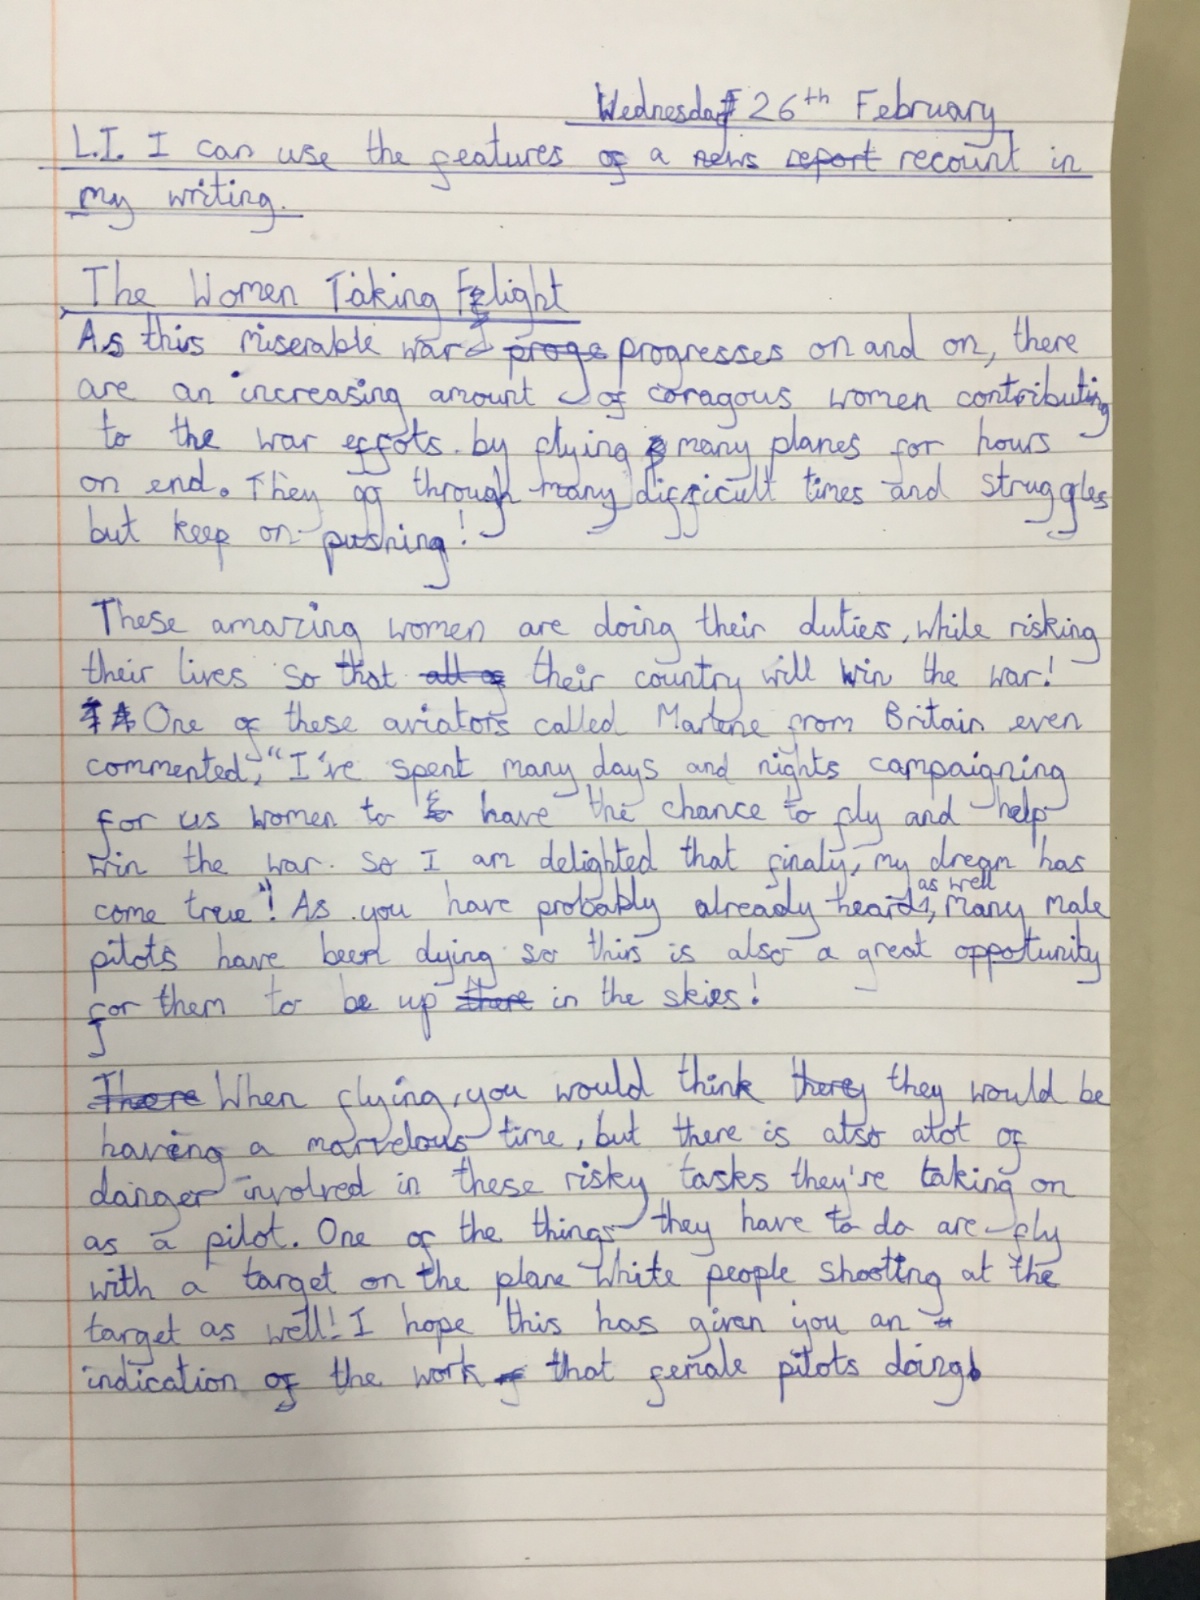 Wednesday 26th February
L.I. I can use the features of a news report recount in
my writing.
The Women Taking Flight
As this miserable war proge progresses on and on, there
are an increasing amount of coragous women contributing
to the war effots by flying many planes for hours
on end. They go through many difficult times and struggles
but keep on pushing!
These amazing women are doing their duties, while risking
their lives so that all of their country will win the war!
One of these aviators called Marlene from Britain even
commented, "I've spent many days and nights campaigning
for us women to have the chance to fly and help
win the war. So I am delighted that finaly, my dream has
come true"! As you have probably already heard, as well many male
pilots have been dying so this is also a great oppotunity
for them to be up there in the skies!
There When flying, you would think they they would be
having a marvelous time, but there is also alot of
danger involved in these risky tasks they're taking on
as a pilot. One of the things they have to do are fly
with a target on the plane while people shooting at the
target as well! I hope this has given you an
indication of the work of that female pilots doing.